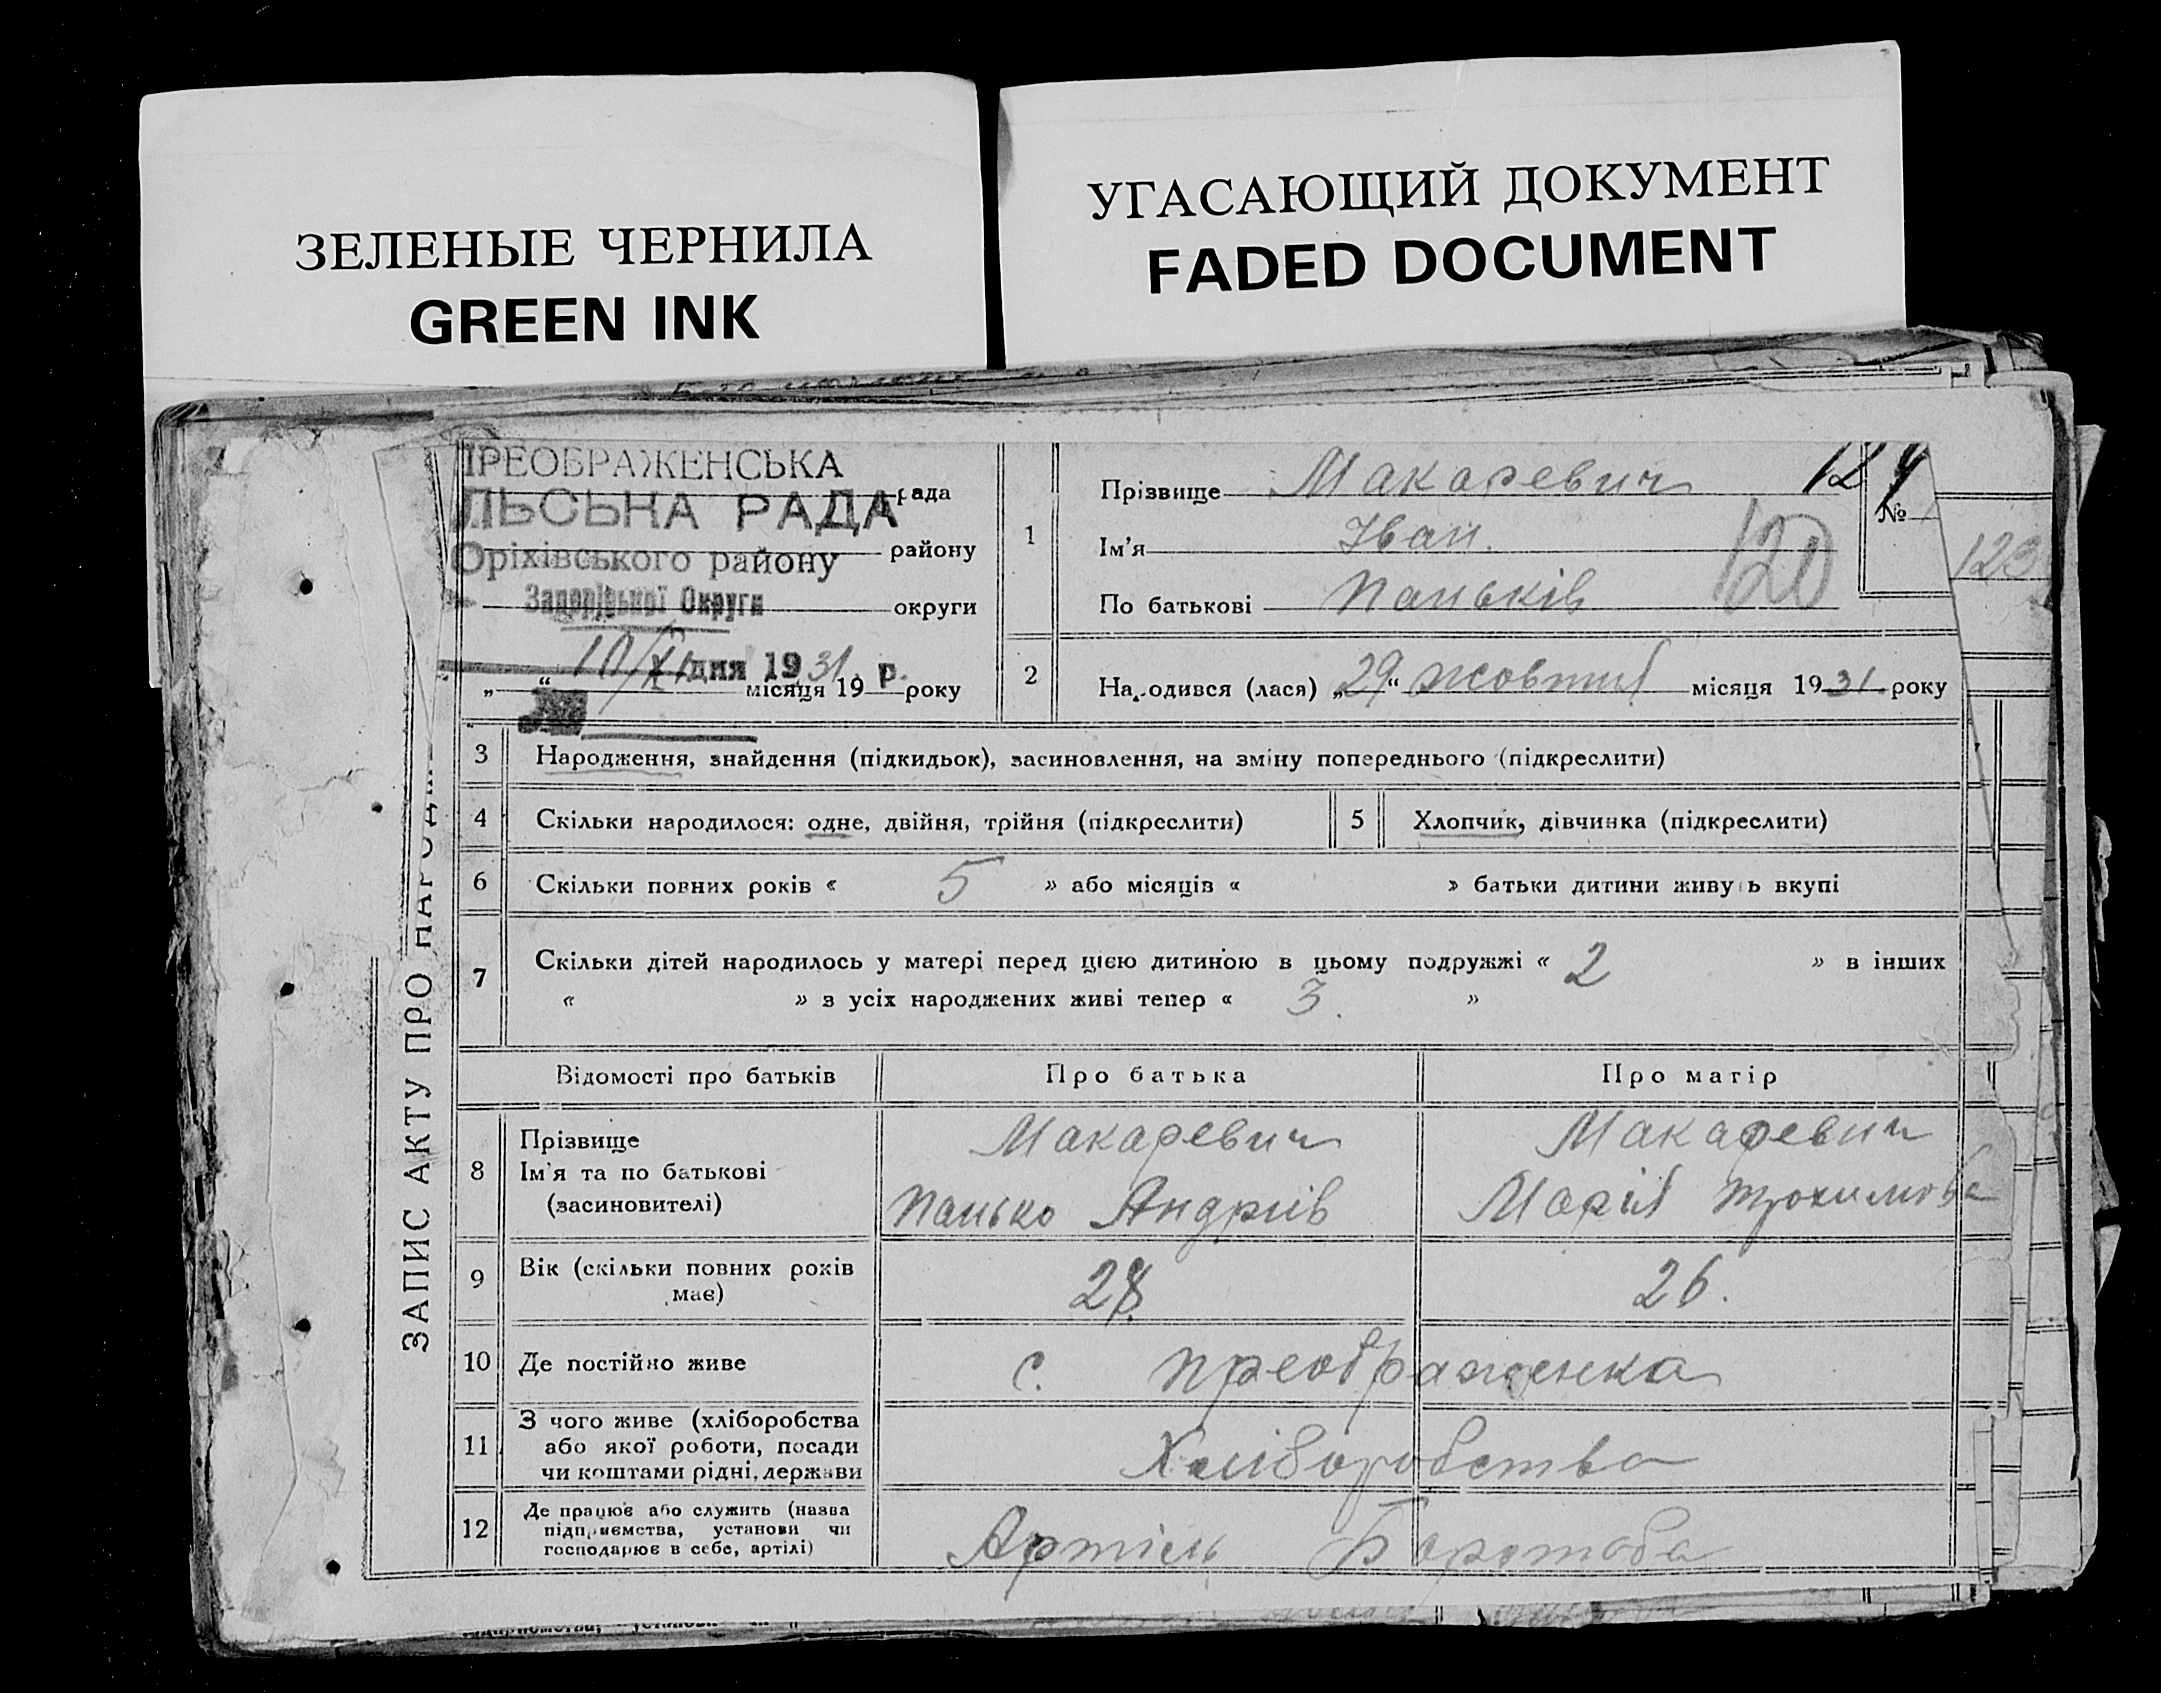 ЗЕЛЕНЫЕ ЧЕРНИЛА
GREEN INK
УГАСАЮЩИЙ ДОКУМЕНТ
FADED DOCUMENT
ЗАПИС АКТУ ПРО
ПРЕОБРАЖЕНСЬКА
рада
ЛЬСЬКА РАДА
Оріхівського району району
Запорізької Округи округи
10/XI дня 1931 р.
„ “ місяця 19 року
1 Прізвище Макаревич
Ім'я Іван.
По батькові Паньків
124
№
120
123
2 Народився (лася) „29“ жовтня місяця 1931 року
3 Народження, знайдення (підкидьок), засиновлення, на зміну попереднього (підкреслити)
4 Скільки народилося: одне, двійня, трійня (підкреслити) 5 Хлопчик, дівчинка (підкреслити)
6 Скільки повних років « 5 » або місяців « » батьки дитини живуть вкупі
7 Скільки дітей народилось у матері перед цією дитиною в цьому подружжі « 2 » в інших
« » з усіх народжених живі тепер « 3. »
Відомості про батьків Про батька Про матір
8 Прізвище Макаревич Макаревич
Ім'я та по батькові
(засиновителі) Панько Андріїв Марія Трохимова
9 Вік (скільки повних років має) 28. 26.
10 Де постійно живе с. Преображенка
11 З чого живе (хліборобства
або якої роботи, посади
чи коштами рідні, держави Хліборобства
12 Де працює або служить (назва
підприємства, установи чи
господарює в себе, артілі) Артіль Боротьба